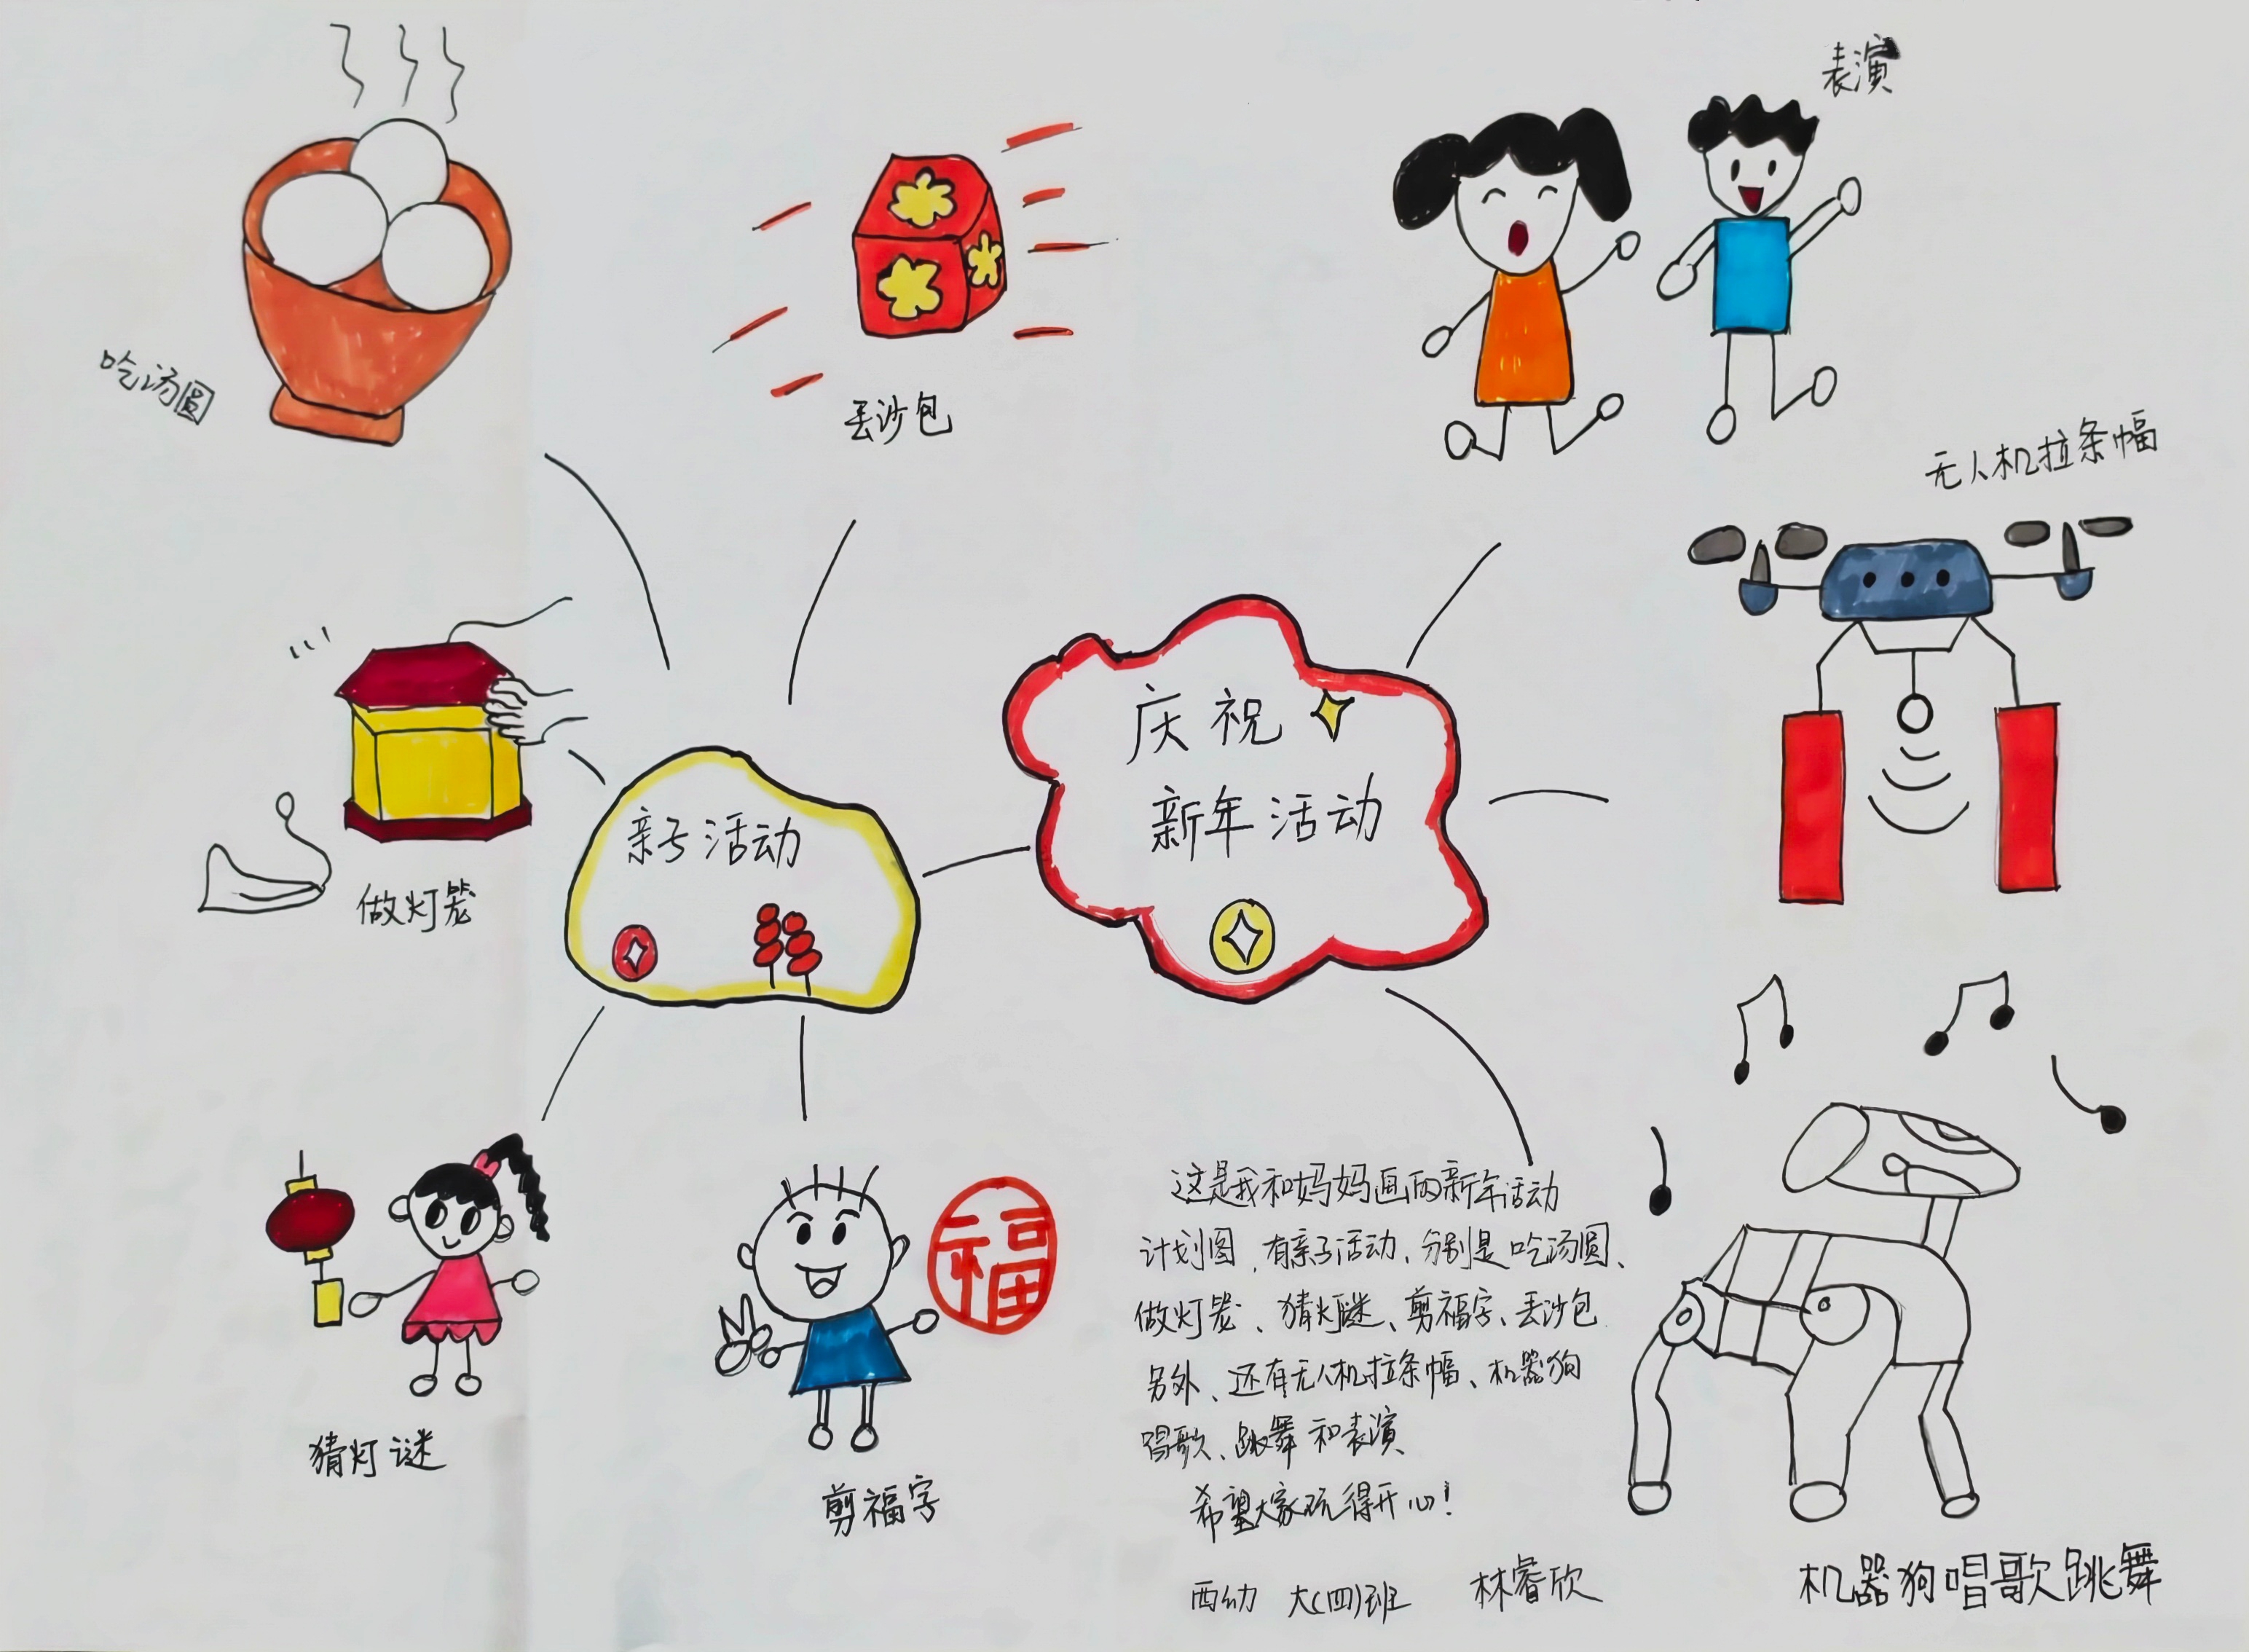 表演
吃汤圆
丢沙包
无人机拉条幅
庆祝
新年活动
亲子活动
做灯笼
福
猜灯谜
剪福字
这是我和妈妈画的新年活动
计划图，有亲子活动、分别是吃汤圆、
做灯笼、猜灯谜、剪福字、丢沙包
另外、还有无人机拉条幅、机器狗
唱歌、跳舞和表演
希望大家玩得开心！
西幼 大(四)班 林睿欣
机器狗唱歌跳舞